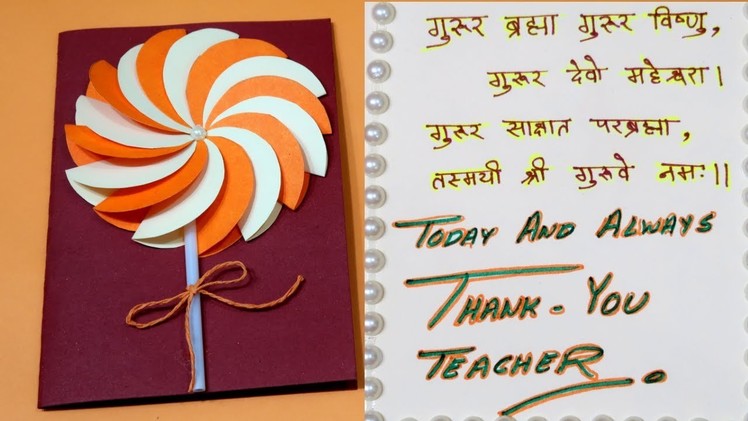 गुरूर ब्रह्मा गुरूर विष्णु,
गुरूर देवो महेश्वरा।
गुरूर साक्षात परब्रह्मा,
तस्मयी श्री गुरूवे नमः।।
TODAY AND ALWAYS
THANK-YOU
TEACHER.